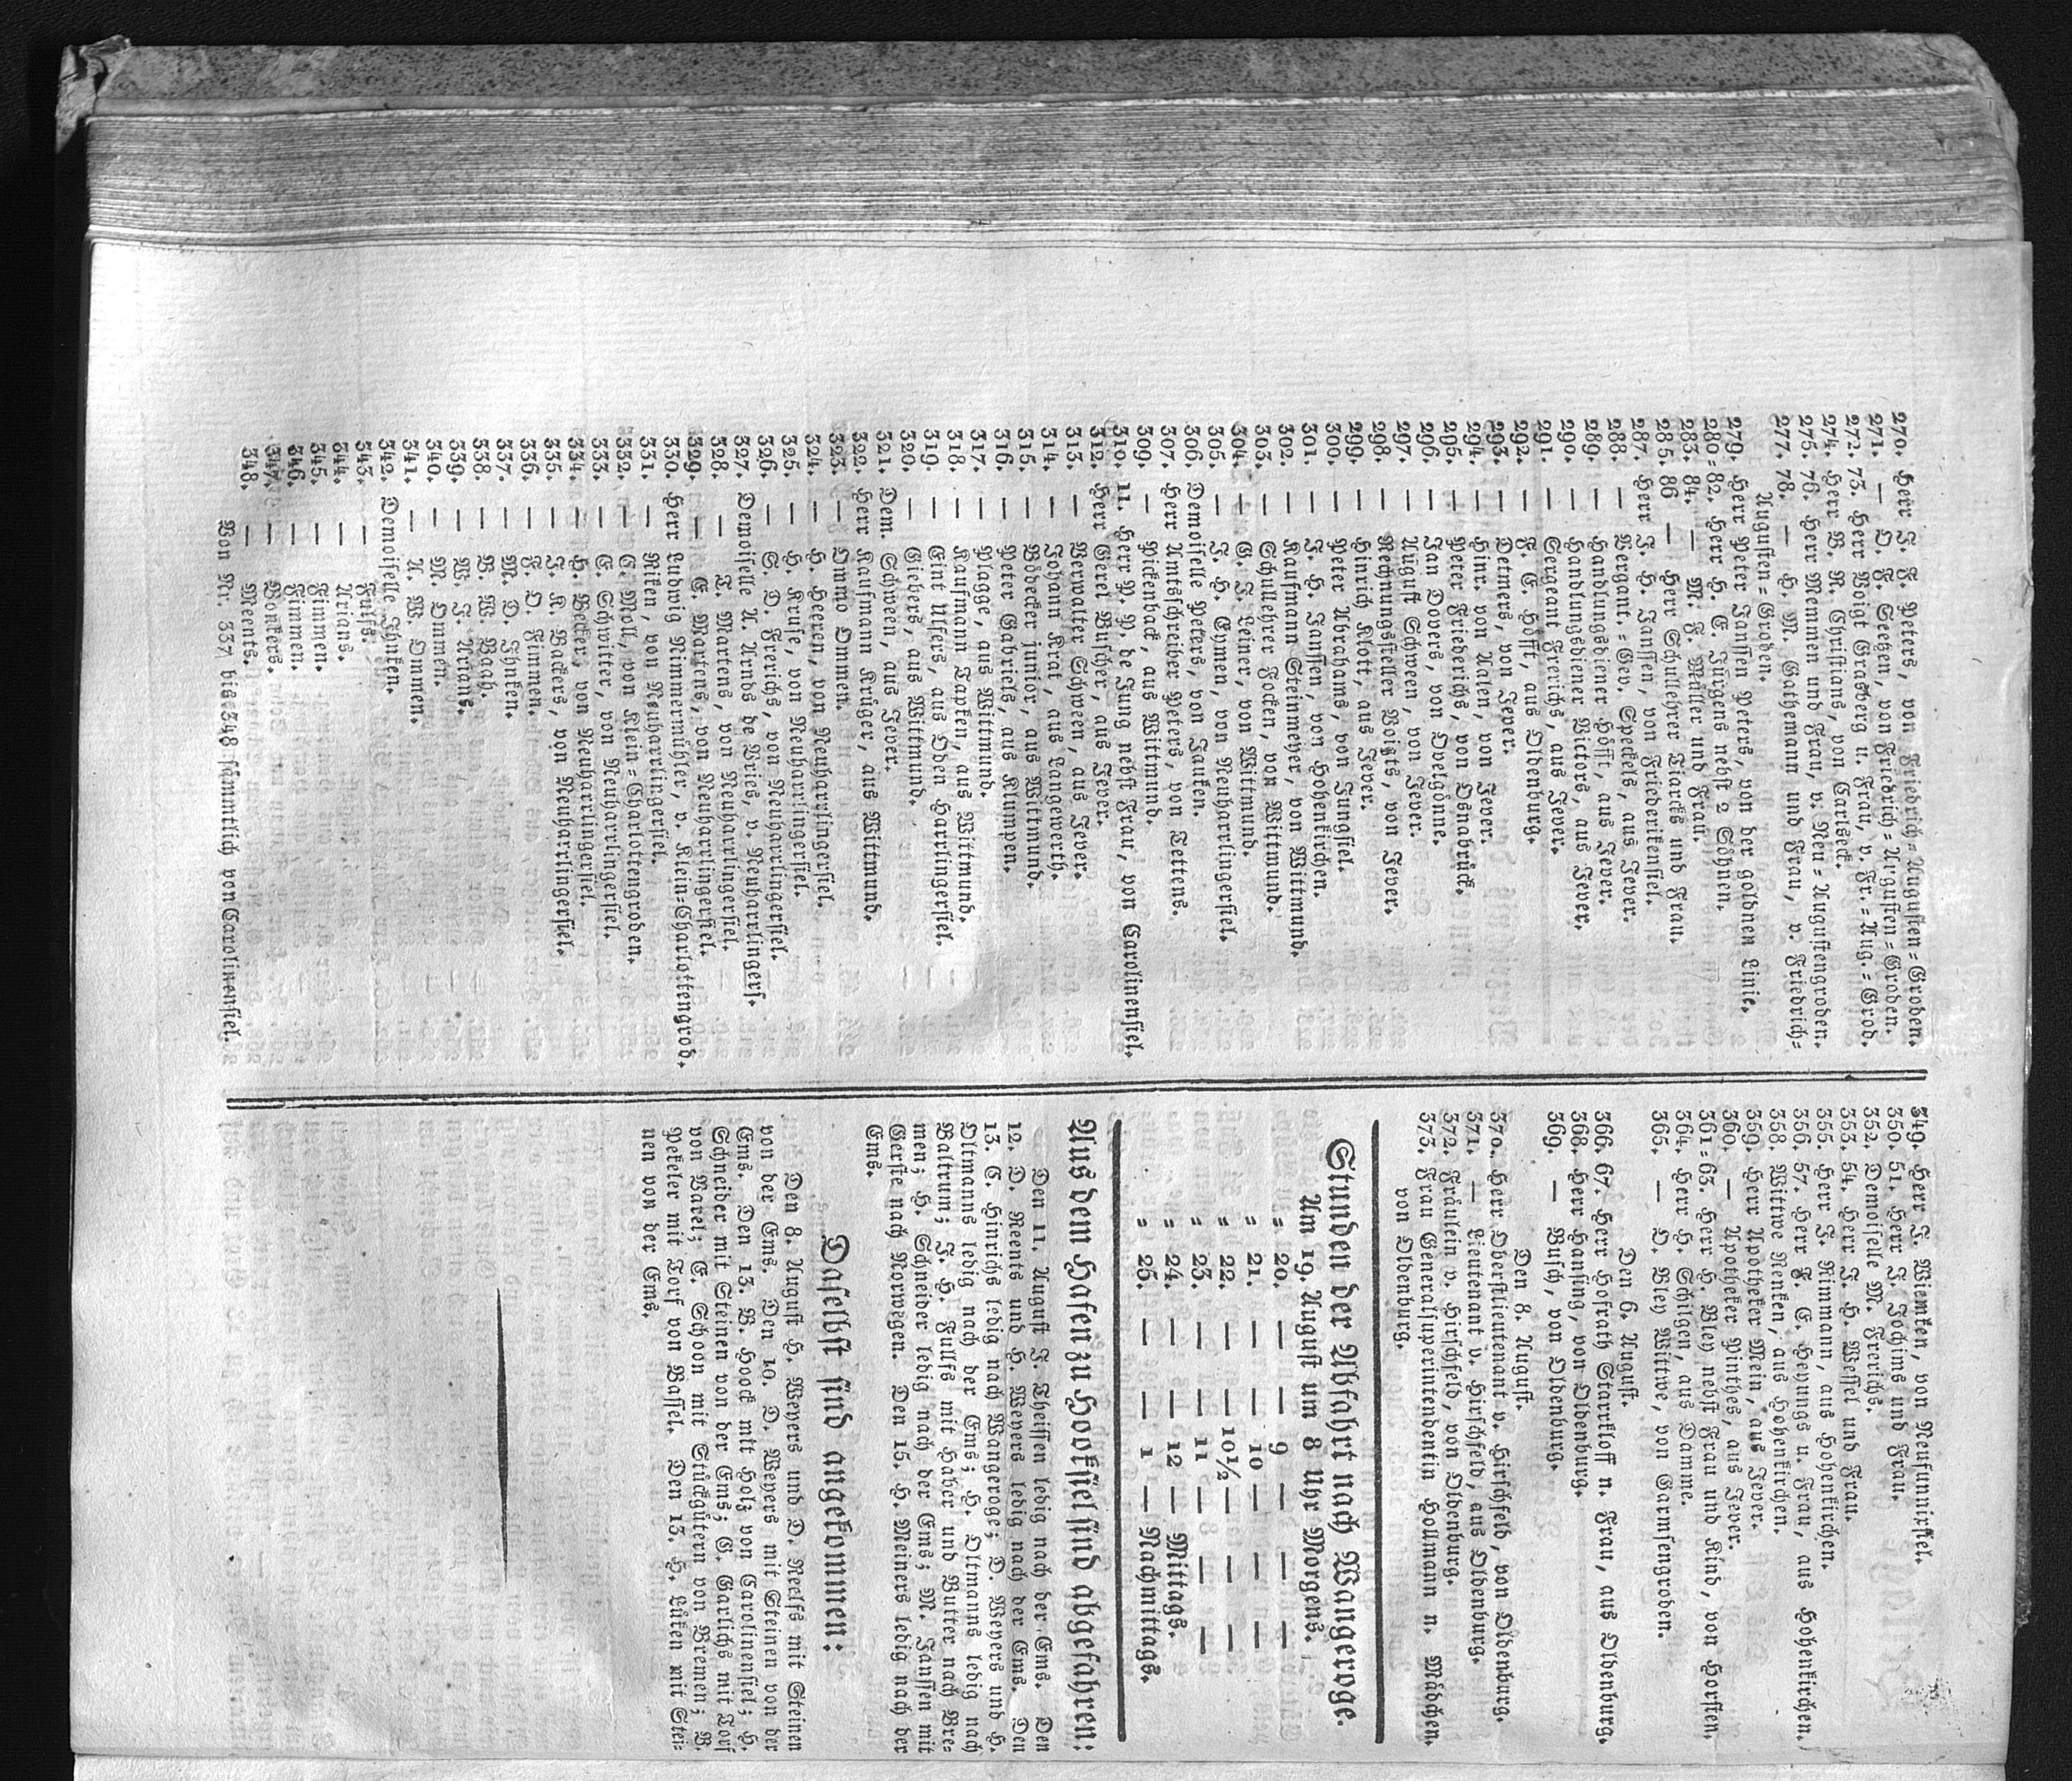 270. Herr J. F. Peters, von Friedrich=Augusten=Groden.
271. — O. F. Seegen, von Friedrich=Augusten=Groden.
272. 73. Herr Voigt Grasberg u. Frau, v. Fr.=Aug.=Grod.
274. Herr B. M. Christians, von Carlseck.
275. 76. Herr Memmen und Frau, v. Neu=Augustengroden.
277. 78. — H. M. Gathemann und Frau, v. Friedrich=
Augusten=Groden.
279. Herr Peter Janssen Peters, von der goldnen Linie.
280=82. Herr H. C. Jürgens nebst 2 Söhnen.
283. 84. — M. F. Müller und Frau.
285. 86 — Herr Schullehrer Tiarks und Frau.
287. Herr J. H. Janssen, von Friederikensiel.
288. — Vergant.=Gev. Spekels, aus Jever.
289. — Handlungsdiener Höfft, aus Jever.
290. — Handlungsdiener Victors, aus Jever.
291. — Sergeant Frerichs, aus Jever.
292. — F. C. Höfft, aus Oldenburg.
293. — Detmers, von Jever.
294. — Hinr. von Halen, von Jever.
295. — Peter Friederichs, von Osnabrück.
296. — Jan Dovers, von Delegönne.
297. — August Schween, von Jever.
298. — Rechnungssteller Voigts, von Jever.
299. — Hinrich Klott, aus Jever.
300. — Peter Abrahams, von Jungsiel.
301. — J. H. Janssen, von Hohenkirchen.
302. — Kaufmann Steinmeyer, von Wittmund.
303. — Schullehrer Focken, von Wittmund.
304. — G. J. Leiner, von Witmund.
305. — J. H. Ehmen, von Neuharlingersiel.
306. Demoiselle Peters, von Jausen.
307. Herr Amtsschreiber Peters, von Tettens.
309. — Pickenback, aus Wittmund.
310. 11. Herr M. P. de Jung nebst Frau, von Carolinensiel.
312. Herr Gerel Buscher, aus Jever.
313. — Verwalter Schween, aus Jever.
314. — Johann Krat, aus Langewerth.
315. — Bödecker junior, aus Wittmund.
316. — Peter Gabriels, aus Klumpen.
317. — Plagge, aus Wittmund.
318. — Kaufmann Tapken, aus Wittmund.
319. — Eint Ulfers, aus Oder Harlingersiel.
320. — Siebers, aus Wittmund.
321. Dem. Schween, aus Jever.
322. Herr Kaufmann Krüger, aus Wittmund.
323. — Dmmo Ommen.
324. — H. Heeren, von Neuharlingersiel.
325. — H. Kruse, von Neuharlingersiel.
326. — S. D. Frerichs, von Neuharlingersiel.
327. Demoiselle A. Arends de Vries, v. Neuharlingers.
328. — T. Martens, von Neuharlingersiel.
329. — G. Martens, von Neuharlingersiel.
330. Herr Ludwig Ammermühler, v. Klein=Charlottengrod.
331. — Alten, von Neuharlingersiel.
332. — G. Moll, von Klein=Charlottengroden.
333. — C. Schmitter, von Neuharlingersiel.
334. — H. Becker, von Neuharrlingersiel.
335. — J. K. Backers, von Neuharlingersiel.
336. — F. D. Fimmen.
337. — M. D. Ihnken.
338. — B. B. Baab.
339. — B. J. Arians.
340. — M. Ommen.
341. — A. B. Ommen.
342. Demoiselle Ihnken.
343. — Fulfs.
344. — Arians.
345. — Fimmen.
346. — Fimmen.
347. — Wonkens.
348. — Ments.
Von Nr. 337 bis 348 sämmtlich von Carolinensiel.
349. Herr J. Miemken, von Neufunnixsiel.
350. 51. Herr J. Jochims und Frau.
352. Demoiselle M. Frerichs.
353. 54. Herr J. H. Wessel und Frau.
355. Herr J. Mimmann, aus Hohenkirchen.
356. 57. Herr F. C. Heyungs u. Frau, aus Hohenkirchen.
358. Witwe Kerken, aus Hohenkirchen.
359. Herr Apotheker Mein, aus Jever.
360. — Apotheker Pinthes, aus Jever.
361=63. Herr H. Bley nebst Frau und Kind, von Horsten.
364. Herr H. Schilgen, aus Damme.
365. — D. Bley Wittwe, von Garmsengroden.
Den 6. August.
366. 67. Herr Hofrath Starkloff n. Frau, aus Oldenburg.
368. Herr Hansing, von Oldenburg.
369. — Busch, von Oldenburg.
Den 8. August.
370. Herr Oberstlieutenant v. Hirschfeld, von Oldenburg.
371. — Lieutenant v. Hirschfeld, aus Oldenburg.
372. Fräulein v. Hirschfeld, von Oldenburg.
373. Frau Generalsuperintendentin Hollmann n. Mädchen,
von Oldenburg.
Stunden der Abfahrt nach Wangeroge.
Am 19. August um 8 Uhr Morgens.
= 20. — — 9 — —
= 21. — — 10 — —
= 22. — — 10½ — —
= 23. — — 11 — —
= 24. — — 12 — Mittags.
= 25. — — 1 — Nachmittags.
Aus dem Hafen zu Hooksiel sind abgefahren:
Den 11. August J. Theissen ledig nach der Ems. Den
12. D. Reents und H. Meyers ledig nach der Ems. Den
13. C. Hinrichs ledig nach Wangeroge; D. Meyers und H.
Oltmanns ledig nach der Ems; H. Oltmanns ledig nach
Baltrum; J. H. Fullfs mit Haber und Butter nach Bre=
men; H. Schneider ledig nach der Ems; M. Janssen mit
Gerste nach Norwegen. Den 15. H. Meiners ledig nach der
Ems.
Daselbst sind angekommen:
Den 8. August H. Meyers und D. Reelfs mit Steinen
von der Ems. Den 10. D. Meyers mit Steinen von der
Ems. Den 13. B. Hook mit Holz von Carolinensiel; H.
Schneider mit Steinen von der Ems; G. Garlichs mit Torf
von Varel; C. Schoon mit Stückgütern von Bremen; B.
Pekeler mit Torf von Bassel. Den 13. H. Lüken mit Stei=
nen von der Ems.